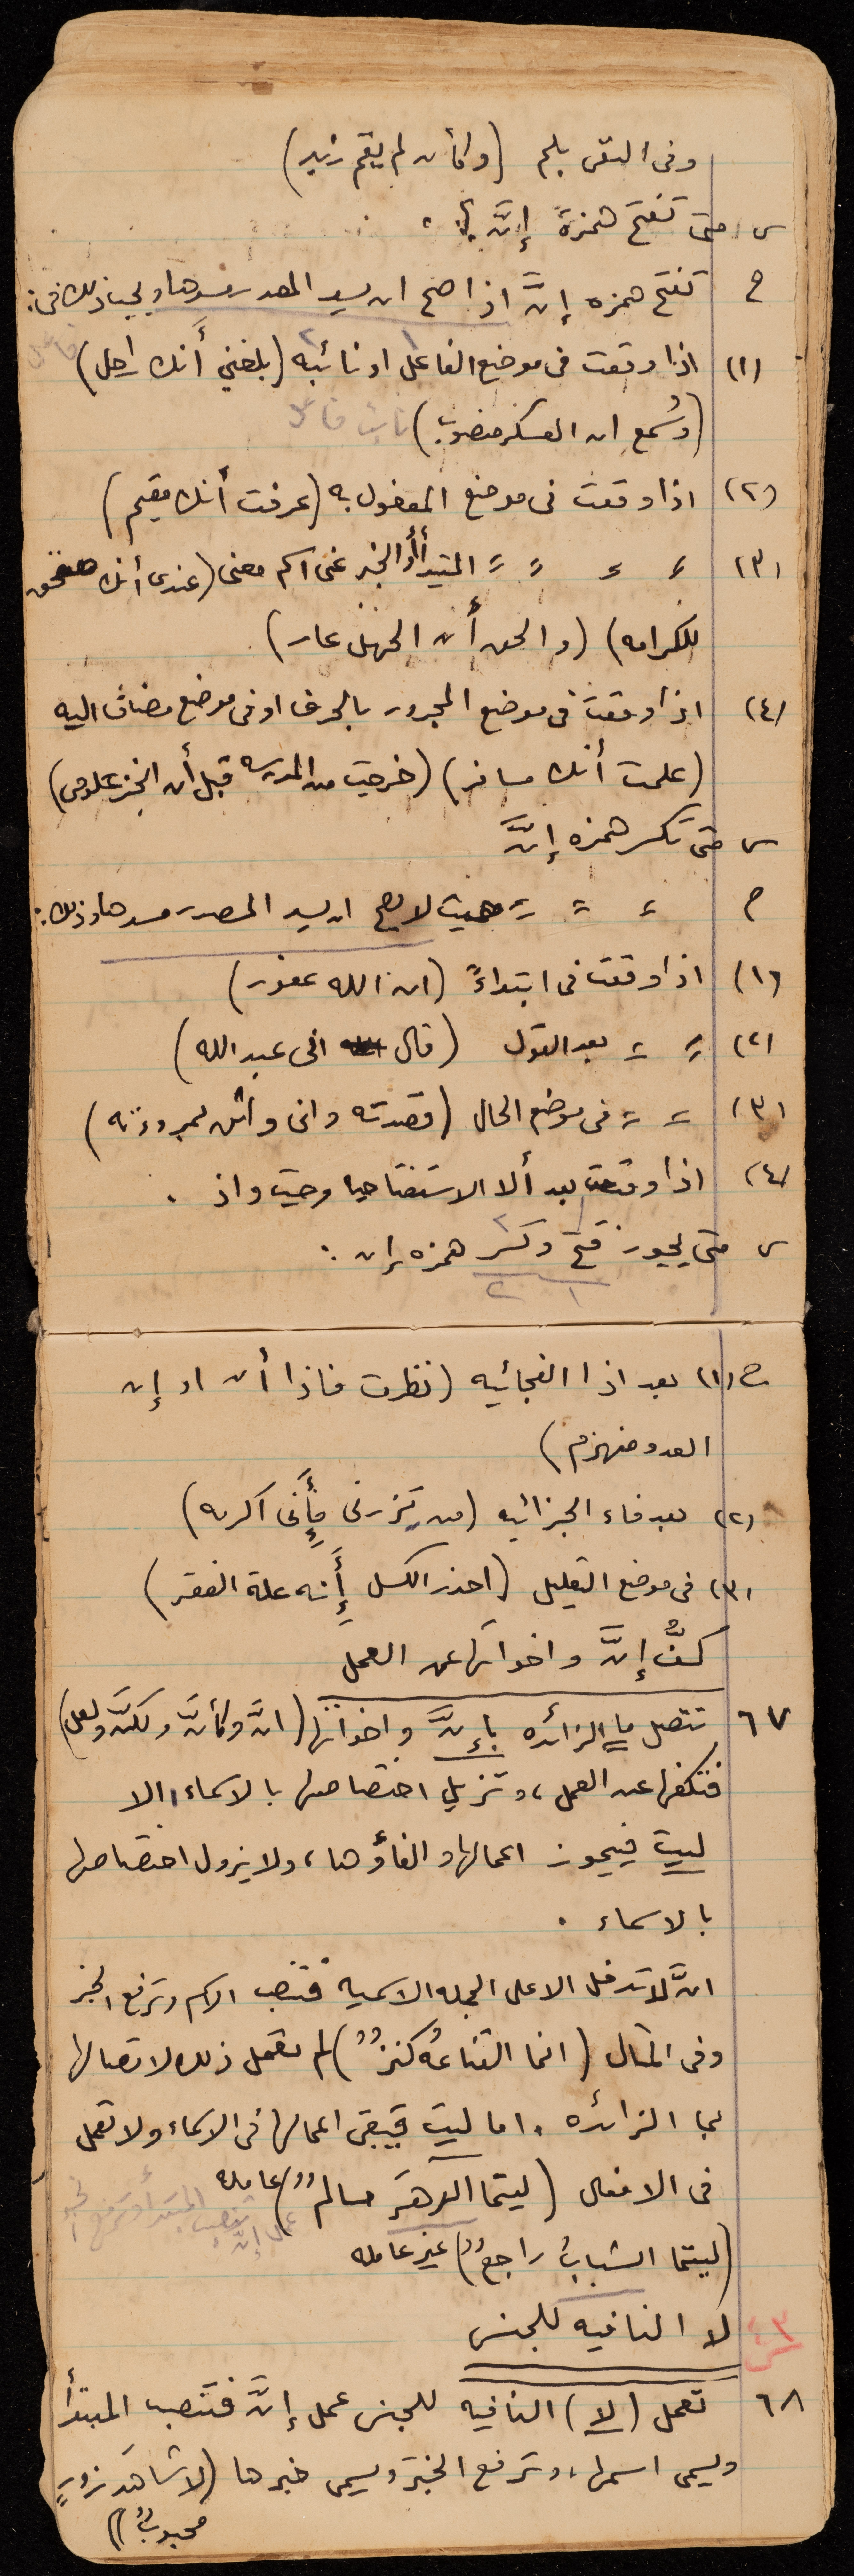 وفى النفى بلم (وكأن لم يقم زيد)
س متى تفتح همزة إنَّ ؟
ج تفتح همزه إنَّ اذا صح ان يسد المصدر مسدها ويجب ذلك فى :
(١) اذا وقعت فى موضع الفاعل ١ او نائبه ٢ (بلغني أَنك راحل) فاعل
(وسُمع ان العسكر منصوب) نائب فاعل
(٢) اذا وقعت فى موضع المفعول به (عرفت أنك مقيم)
(٣)〃 〃 〃 〃 المبتدأ أو الخبر عن اسم معنى (عندى أنك مستحق
للكرامه) (والحق أن الجهل عار)
(٤) اذا وقعت فى موضع المجرور بالحرف او فى موضع مضاف اليه
(علمت أنك مسافر) (خرجت من المدرسه قبل أن الخبر علومى)
س متى تكسر همزه إنَّ
ج 〃 〃 〃 حيث لا يصح ان يسد المصدر مسدها وذلك :
(١) اذا وقعت فى ابتداءً (ان الله غفور)
(٢) 〃 〃 بعد القول (قال انى عبد الله)
(٣) 〃 〃 فى موضع الحال (قصدته وانى واثق بمروءته)
(٤) اذا وقعت بعد ألا الاستفتاحيا وحيث واذ .
س متى يجوز فتح ١ وكسر ٢ همزه إن :
١ ٢
ج (١) بعد اذا الفجائيه (نظرت فاذا أن او إن
العدو منهزم)
(٢) بعد فاء الجزائيه (من يزرنى فإَنى اكرمه)
(٣) فى موضع التعليل (احذر الكسل إَنه علة الفقر)
كفُّ إنَّ واخواتها عن العمل
٦٧ تتصل ما الزائده بإنَّ واخواتها (انَّ وكأنَّ ولكنَّ ولعل)
فتكفها عن العمل، وتزيل اختصاصها بالاسماء، الا
ليت فيجوز اعمالها والغاؤها، ولا يزول اختصاصها
بالاسماء .
انَّ لا تدخل الا على الجمله الاسميه فتنصب الاسم وترفع الخبر
وفى المثال (انما القناعهُ كنزٌ) لم تعمل ذلك لاتصالها
بما الزائده . اما ليت فيبقى اعمالها فى الاسماء ولا تعمل
فى الافعال (ليتما الدهرَ سالمٌ) عامله
عمل إنَّ تنصب المبتدأ وترفع الخبر
(ليتما الشبابُ راجعٌ) غير عامله
٣ لا النافيه للجنس
٦٨ تعمل (لا) النافيه للجنس عمل إنَّ فتنصب المبتدأ
ويسمى اسمها، وترفع الخبر ويسمى خبرها (لا شاهدَ زورٍ
محبوبٌ)